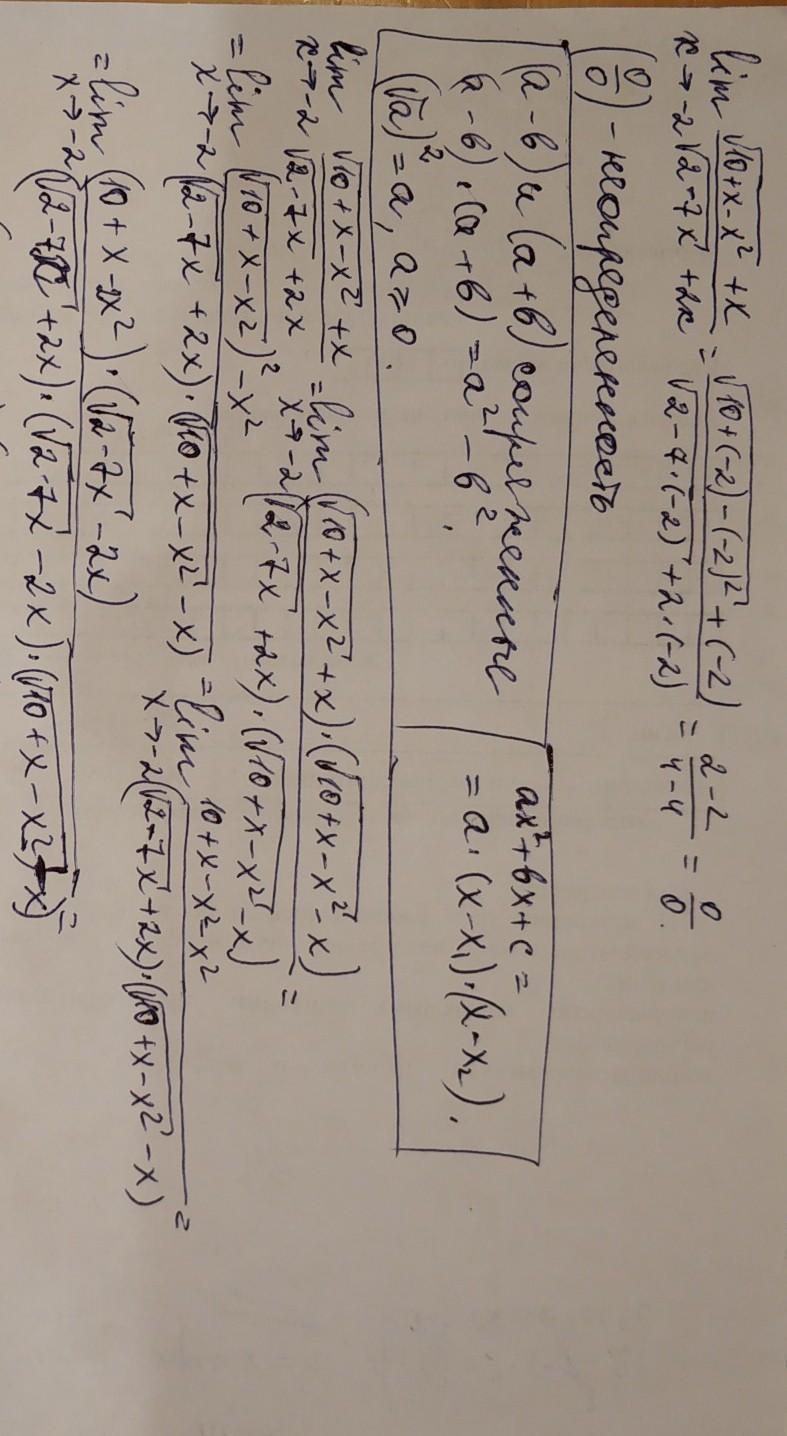 lim x→-2 (√(10+x-x²) + x)/(√(2-7x) + 2x) = (√(10+(-2)-(-2)²) + (-2))/(√(2-7·(-2)) + 2·(-2)) = (2-2)/(4-4) = 0/0.
(0/0) - неопределенность
(a-b) и (a+b) сопряженные
(a-b)·(a+b) = a² - b².
(√a)² = a, a ≥ 0.
ax²+bx+c =
= a·(x-x₁)·(x-x₂).
lim x→-2 (√(10+x-x²) + x)/(√(2-7x) + 2x) = lim x→-2 ((√(10+x-x²) + x)·(√(10+x-x²) - x))/((√(2-7x) + 2x)·(√(10+x-x²) - x)) =
= lim x→-2 ((√(10+x-x²))² - x²)/((√(2-7x) + 2x)·(√(10+x-x²) - x)) = lim x→-2 (10+x-x²-x²)/((√(2-7x) + 2x)·(√(10+x-x²) - x)) =
= lim x→-2 ((10+x-2x²)·(√(2-7x) - 2x))/((√(2-7x) + 2x)·(√(2-7x) - 2x)·(√(10+x-x²) - x)) =